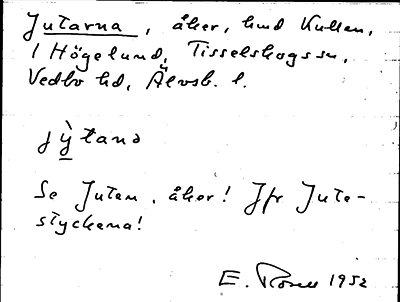 Jutarna, åker, hmd Kullen,
1 Högelund, Tisselskogs sn,
Vedbo hd, Älvsb. l.
jỳtanɔ
Se Juten, åker! Jfr Jute-
styckena!
E. Rosell 1952